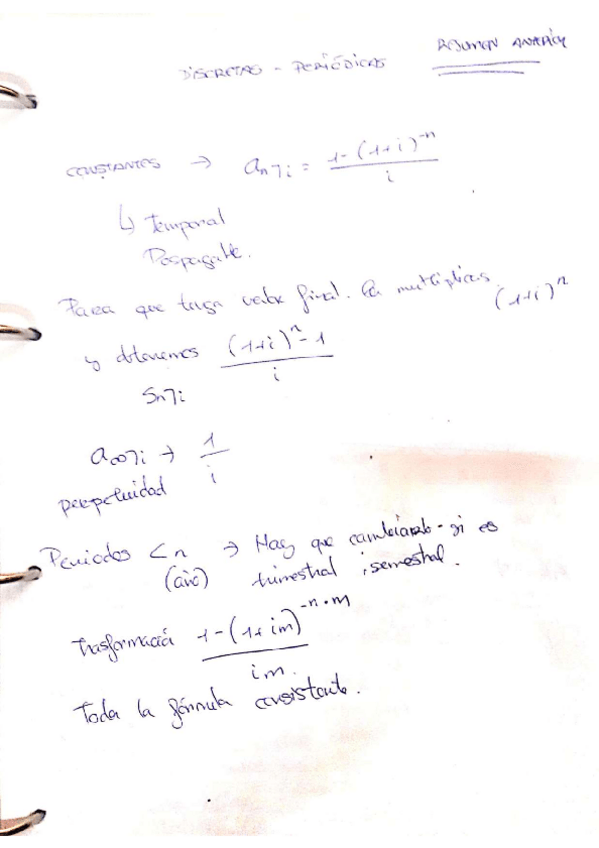 RESUMEN
DISCRETAS - PERIÓDICAS
CONSTANTES → an⌉i = 1-(1+i)^-n / i
↳ Temporal
Pospagable.
Para que tenga valor final. la multiplicas (1+i)^n
y obtenemos (1+i)^n - 1 / i
Sn⌉i
a∞⌉i → 1 / i
perpetuidad
Periodos < n → Hay que cambiarlo - si es
(año) trimestral, semestral.
Trasformación 1-(1+im)^-n·m / im.
Toda la fórmula